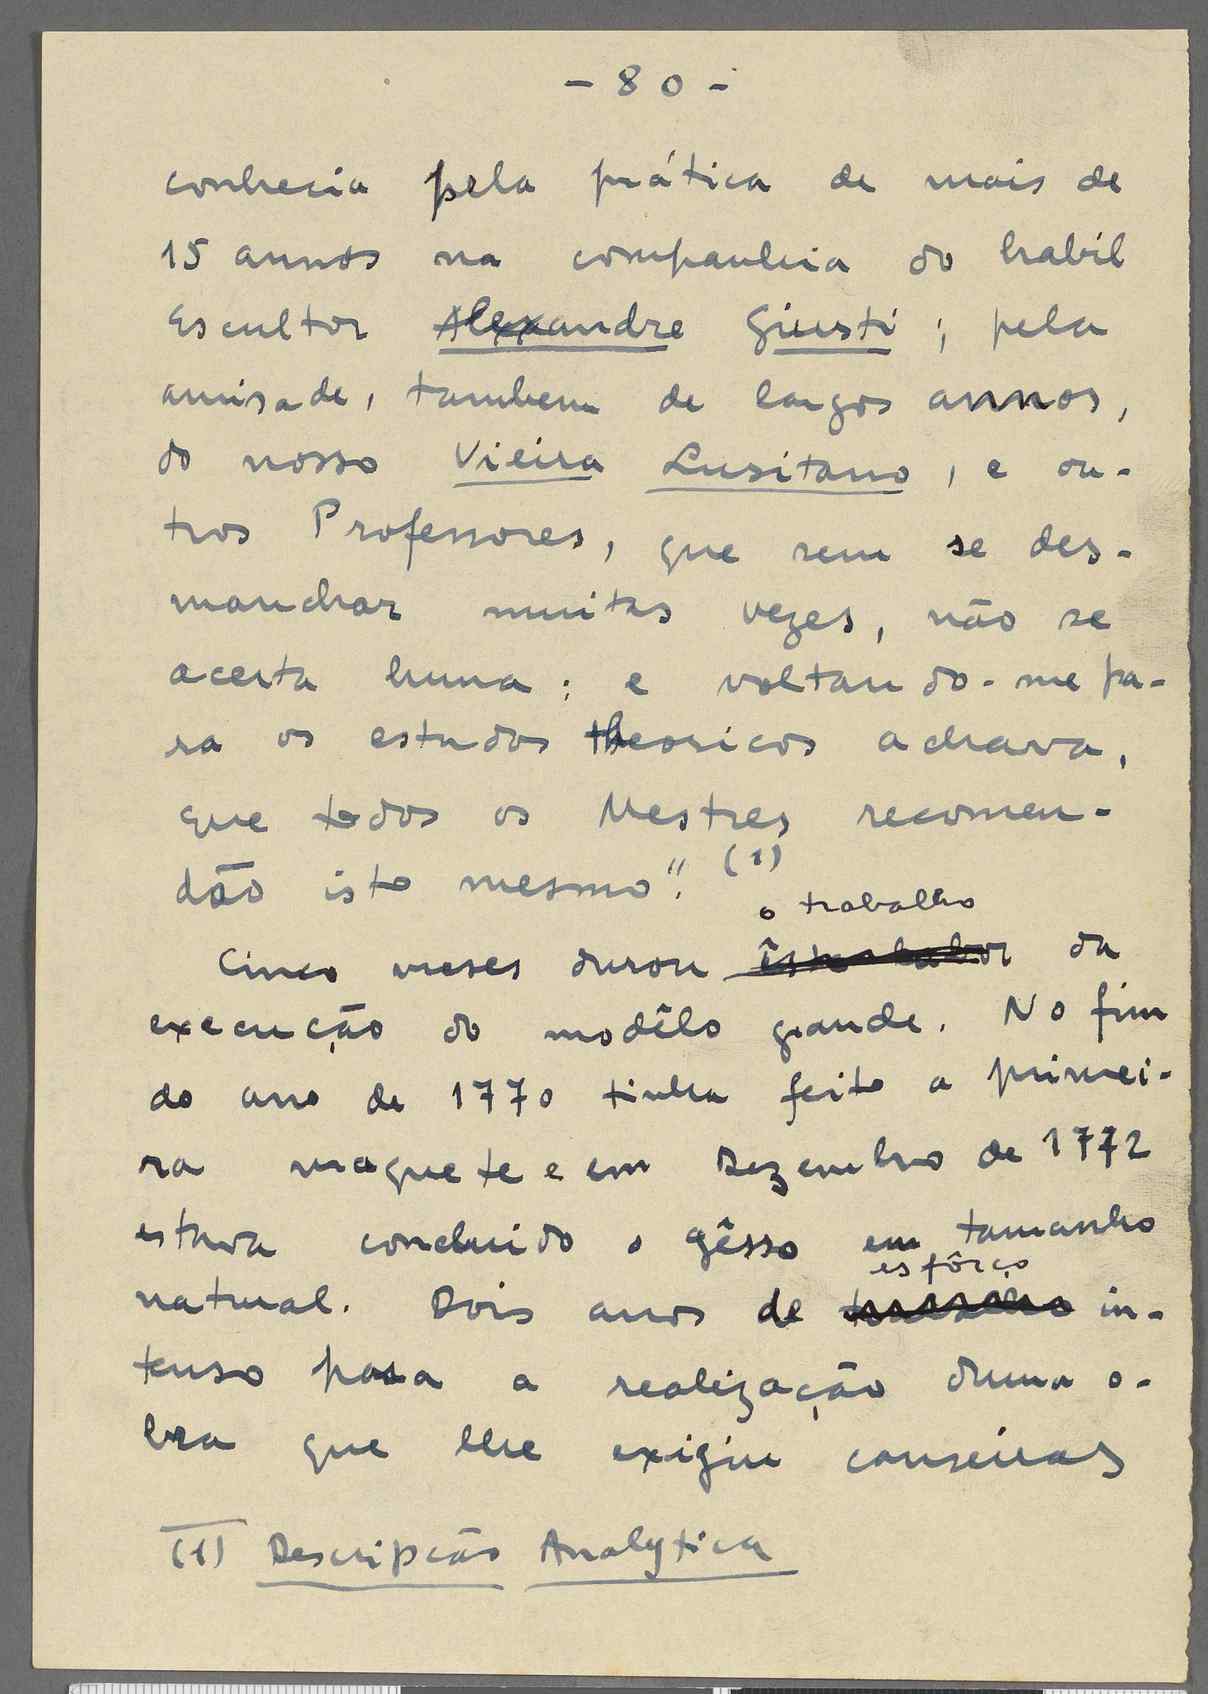 - 80 -
conhecia pela prática de mais de
15 annos na companhia do habil
Escultor Alexandre Giusti; pela
amisade, tambem de largos annos,
do nosso Vieira Lusitano, e ou-
tros Professores, que sem se des-
manchar muitas vezes, não se
acerta huma: e voltando-me pa-
ra os estudos theoricos achava,
que todos os Mestres recomen-
dão isto mesmo". (1)
o trabalho
Cinco meses durou êste labor da
execução do modêlo grande. No fim
do ano de 1770 tinha feito a primei-
ra maquete e em Dezembro de 1772
estava concluido o gêsso em tamanho
esfôrço
natural. Dois anos de trabalho in-
tenso para a realização duma o-
bra que lhe exigiu canseiras
(1) Descripção Analytica